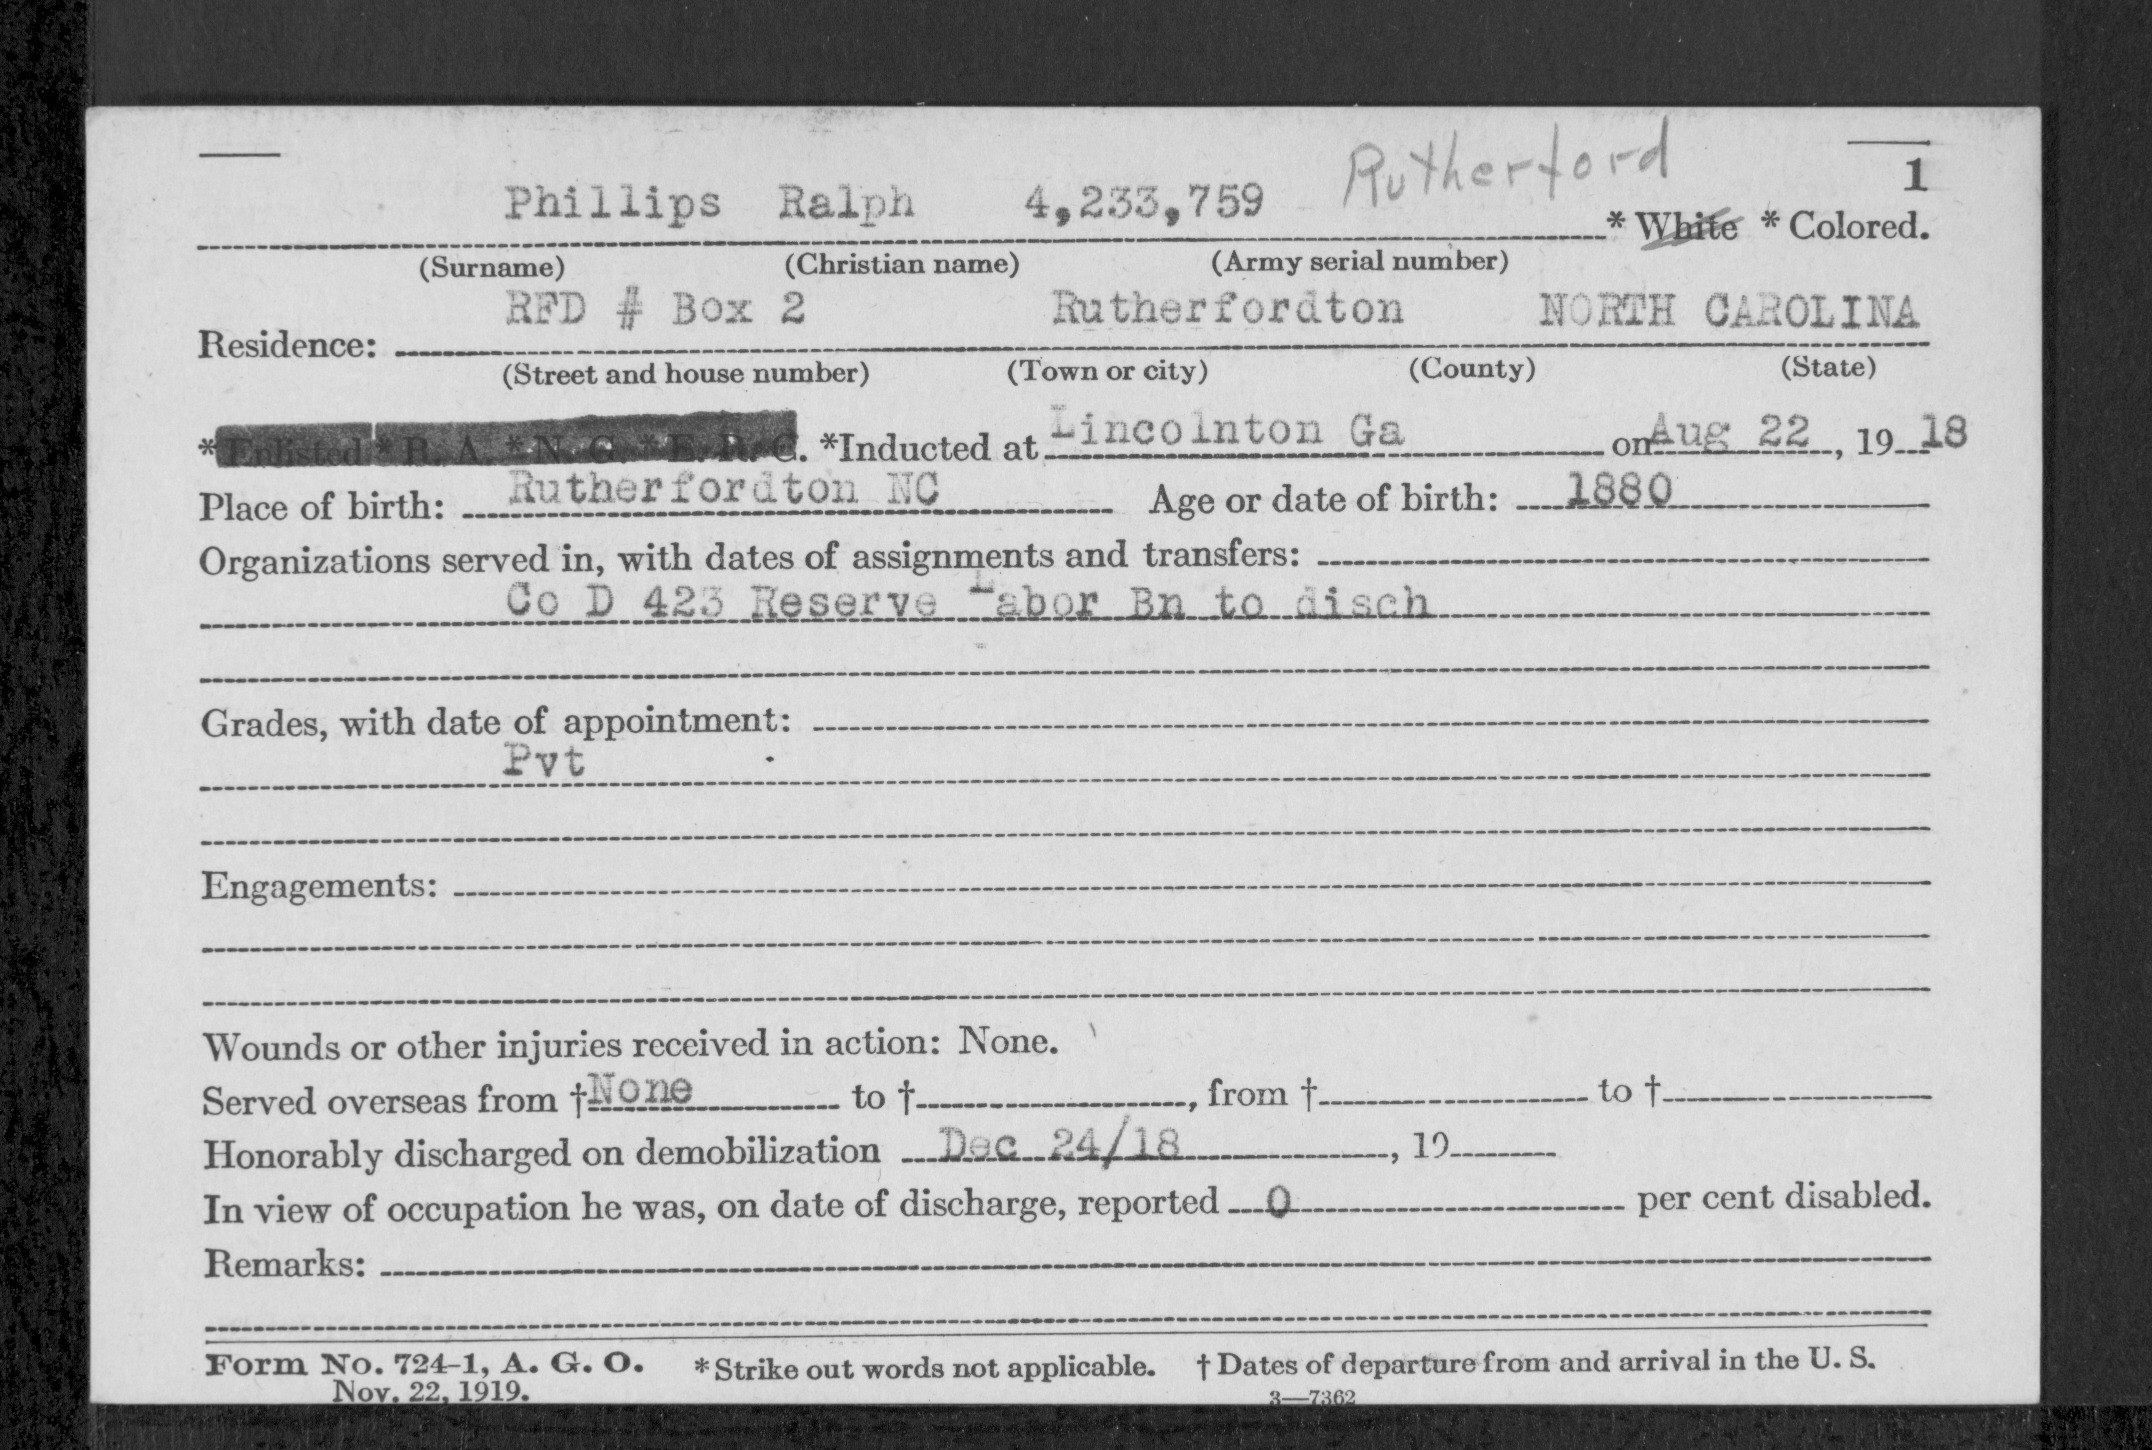 Rutherford
1
Phillips Ralph 4,233,759 * White * Colored.
(Surname) (Christian name) (Army serial number)
RFD # Box 2 Rutherfordton NORTH CAROLINA
Residence:
(Street and house number) (Town or city) (County) (State)
* Enlisted * R. A. * N. G. * E. R. C. *Inducted at Lincolnton Ga on Aug 22, 1918
Place of birth: Rutherfordton NC Age or date of birth: 1880
Organizations served in, with dates of assignments and transfers:
Co D 423 Reserve Labor Bn to disch
Grades, with date of appointment:
Pvt
Engagements:
Wounds or other injuries received in action: None.
Served overseas from †None to †, from † to †
Honorably discharged on demobilization Dec 24/18, 19
In view of occupation he was, on date of discharge, reported 0 per cent disabled.
Remarks:
Form No. 724-1, A. G. O. *Strike out words not applicable. † Dates of departure from and arrival in the U. S.
Nov. 22, 1919. 3—7362